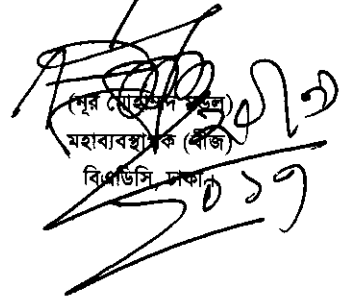 (নূর মোহাম্মদ মন্ডল)
মহাব্যবস্থাপক (বীজ)
বিএডিসি, ঢাকা।